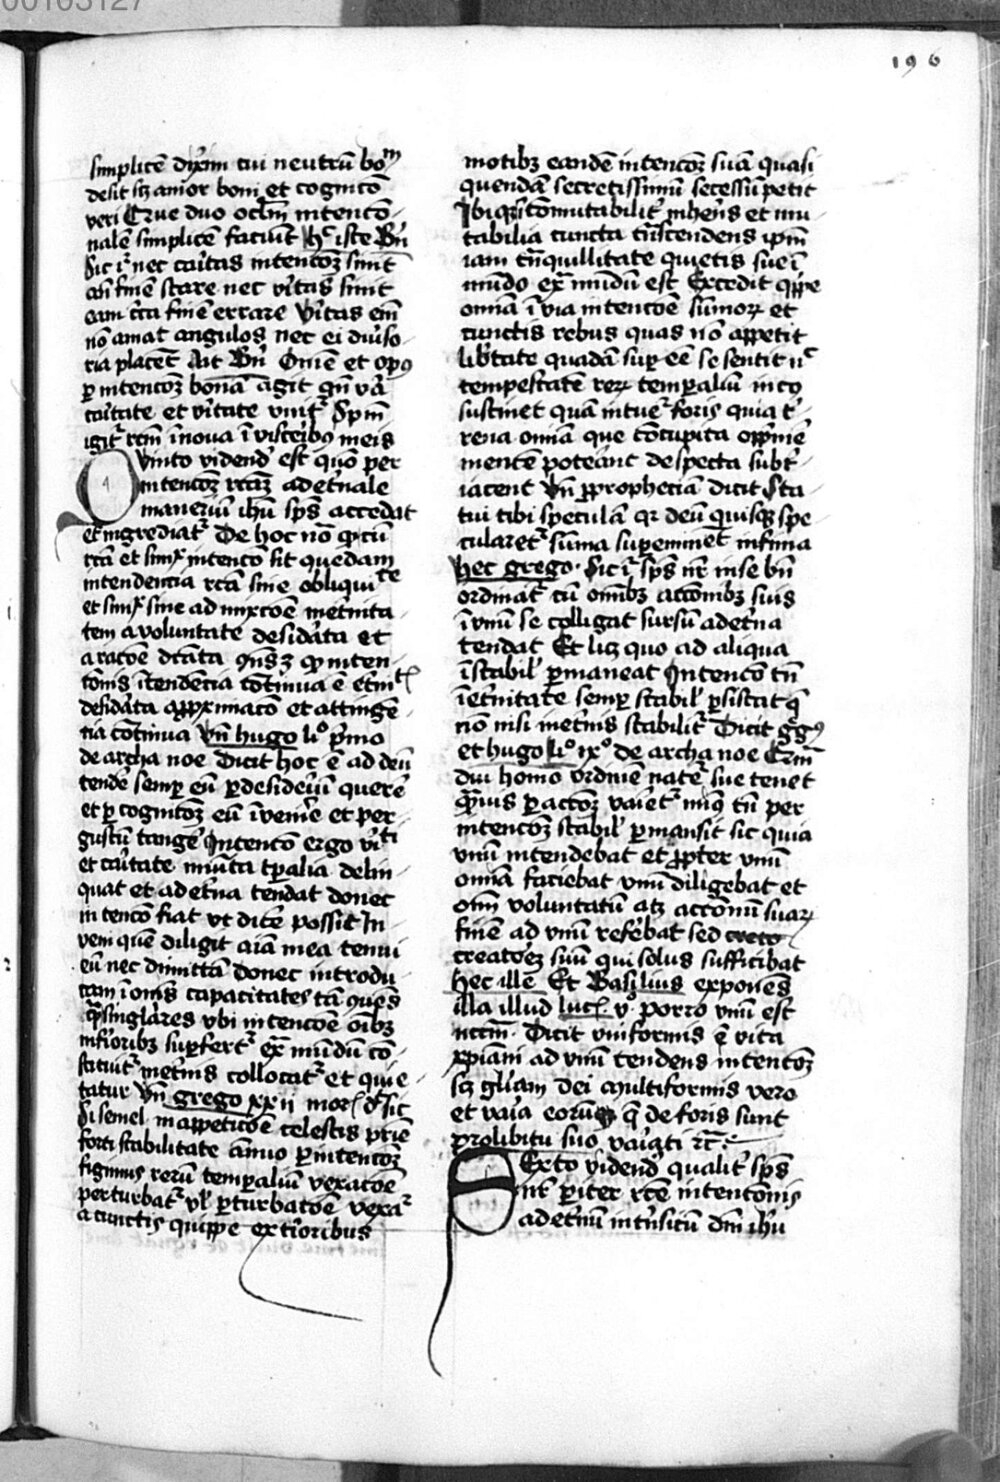 00103127
196
simplicē dixim cui neutrū boni
desit scz amor boni et cognicō
veri Que duo oclm intencō
nalē simplicē faciunt hc iste Bn
Sic ī nec caritas intencoꝫ sinit
an finē stare nec vitas sinit
eam citra finē errare Vitas em
nō amat angulos nec ei diuso
ria placet Ait Bn Omē et opus
p intencoꝫ bonā agit qn va
caritate et vitate vnit Spm
igit rcm īnoua ī visceribus meis
Quinto vidend est quō per
intencoꝫ rcaꝫ ad etnale
maneriū ihu sps accedat
et ingrediat De hoc nō q cū
rcā et simpx intencō sit quedam
intendencia rcā sine obliquite
et simpx sine admixcoe metnita
tem a voluntate desidata et
a racōe dcāta qnsꝫ q inten
tonis ītendencia cotinua ē etnitatis
desidata appximacō et attingē
ria cōtinua Vn hugo lio pmo
de archa noe Dicit hoc ē ad deū
tendē semp eū p desideriū querē
et p cognicoꝫ eū īvenire et per
gustū tangē Intencō ergo viti
et caritate iniucta tpalia delin
quat et ad etna tendat donec
intencō fiat vt dicē possit In
veni quē diligit aia mea tenui
eū nec dimittā donec introdu
cam ī omīs capacitates tā ques
q singlares vbi intencōe oībꝫ
infioribꝫ supfert ex mūdū cō
stituit metnis collocat et quie
tatur Vn grego xxii mor d sic
Si semel in appeticōe celestis priē
forti stabilitate animo p intencoꝫ
figimus rerū temperaliū vexacōe
perturbat vl perturbatōe vexat
a cunctis quippe extioribus
motibꝫ eandē intencoꝫ suā quasi
quendā secretissimū secessū petit
Ibiqꝫ īcōmutabilit inhens et mu
tabilia cuncta trāscendens ipm
iam trāquillitate quietis sue ī
mūdo ex mūdū est Excedit qppe
omia ī via intencōe sumoꝝ et
cunctis rebus quas nō appetit
libtate quadā sup eē se sentit nc
tempestatē reꝝ temperaliū intus
sustinet quā intuet foris quia t
rena omia que cōcupita opprimē
mentē poterant despecta subt
iacent Vn p prophetiā dicit Sta
tui tibi speculā qr deū quisqꝫ spe
cularet sūma supeminet infima
hec grego Sic ī sps nr in se bn
ordinat cū omibꝫ accōnibꝫ suis
ī vnū se colligat sursū ad etna
tendat Et licꝫ quo ad aliqua
īstabil pmaneat Intencō tn
ī etnitate semp stabil psistat q
nō nisi in etnis stabilit Dicit ggus
et hugo lio ixo de archa noe Cum
diu homo ordinē nate sue tenet
quis p actoꝫ vaiet mīqꝫ tn per
intencoꝫ stabil pmansit sic quia
vnū intendebat et ppter vnū
omia faciebat vnū diligebat et
oīm voluntatū atqꝫ accōnū suaꝝ
finē ad vnū referebat sed creto
creatoreꝫ suū qui solus sufficibat
hec ille Et Basilius exponēs
illa illud luc x v porro vnū est
nccm Dicit vniformis ē vita
xpiani ad vnū tendens intencoꝫ
scꝫ gliam dei multiformis vero
et vaia eorūqꝫ q de foris sunt
p libitu suo vagati rc
Sexto vidend qualit sps
nr piter rcē intentōnis
ad etnū intnsicū dni ihu